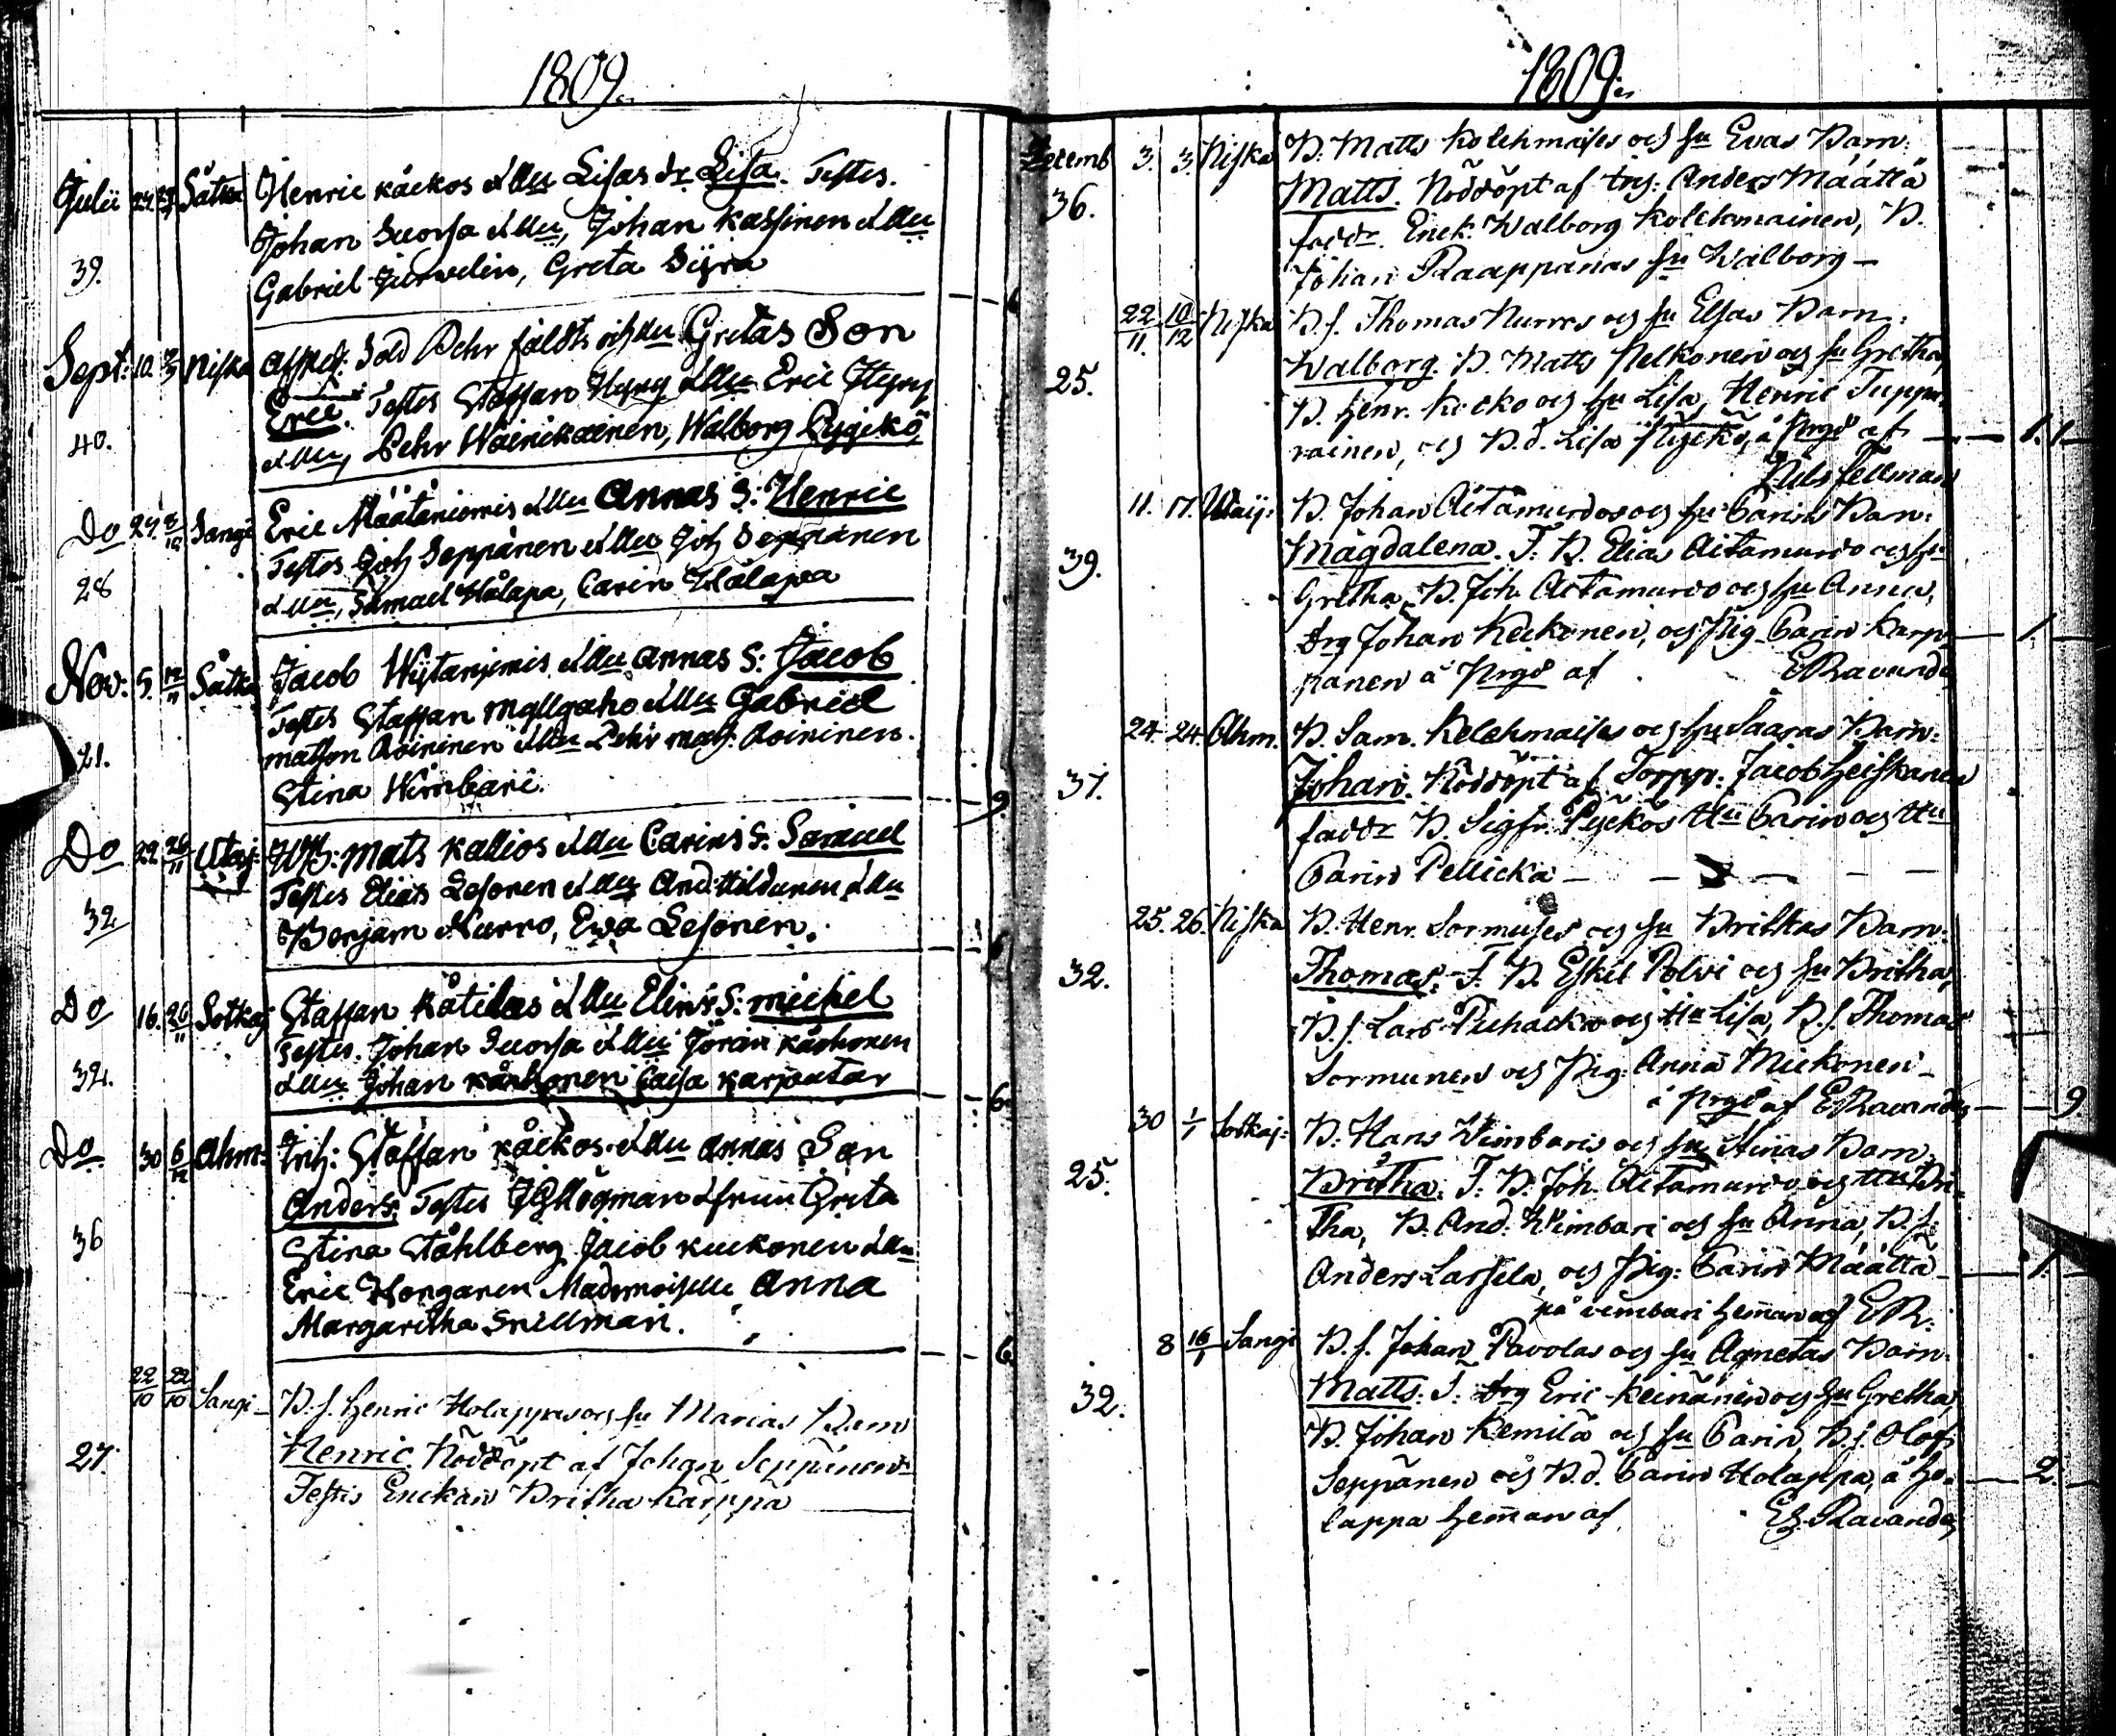 1809.
Julii 24 Såtka Henric Käckos & hu Lisas dr Lisa. Testes.
Johan Suorsa & hu, Johan Kassinen & hu
39. Gabriel Jurvelin, Greta
Sept: 10. Niska Afsked: Sold Pehr fäldts och hu Gretas Son
Eric. Testes Staffan Hyry & hu Eric Hyry
40. & hu, Pehr Wäinikainen, Walborg Pyykkö
Do 27. Sangi Eric Määtäniemis & hu Annas S: Henric
Testes Joh Seppänen & hu Joh Seppänen
28 & hu, Samuel Hålapa, Carin Hålapa
Nov: 5. 12/11 Såtka Jacob & hu Annas S: Jacob
Testes Staffan Myllyaho & hu Gabriel
21. Matsson Roininen & hu Pehr Mats: Roininen.
Stina Wimbari.
Do 22 26/11 Utaj: Mats Kallios & hu Carins S: Samuel
Testes Elias Lesonen & hu And: Hildunen & hu
32 Benjam Nurro, Ewa Lesonen.
Do 16. 26/11 Sotkaj Staffan Kåtilas & hu Elins S: Michel
Testes. Johan Suorsa & hu Jöran Kårhonen
32. & hu Johan Kårhonen Caisa Karjaatar
6.
Do 30 6/12 Ahm: Staffan Käckos & hu Annas Son
Anders: Testes Högman & frun Greta
36 Stina Ståhlberg Jacob Keckonen & hu
Eric Horgaren Mademoiselle Anna
Margaretha Snellman.
6
22/10 22/10 Sangi B.s. Henric Holappas och hu Marias Barn
27. Henric. Nöddöpt af Johan Seppänen
Testes Enckan Britha Karppa
1809.
Decemb 3. 3. Niska B. Matts Kolehmaises och hu Evas Barn:
36. Matts. Nöddöpt af drg: Anders Määttä
faddr. Enck. Walborg Kolehmainen, B.
Johan Raappanas hu Walborg
22/11. 10/12 Niska B.s. Thomas Nurros och hu Elsas Barn:
25. Walborg. B. Matts Pelkonen och hu Gretha,
B. Henr. Kecko och hu Lisa, Henric Tuppu-
rainen, och B.d. Lisa Pyykkö, å Prgd af 1.1
Nils Fellman
11. 17. Utaij: B. Johan Aitamurdos och hu Carins Barn:
39. Magdalena. F. B. Elias Aitamurdo och hu
Gretha, B. Joh. Aitamurdo och hu Anna,
drg Johan Keckonen, och Pig. Carin Karp- 1.
panen å Prgd af E Ravander
24. 24. Ahm. B. Sam. Kolehmaises och hu Saaras Barn:
37. Johan. Nöddöpt af Torpp: Jacob Heiskanen
faddr B. Sigfr. Pyckös Hu Carin och Hu
Carin Pellicka
25. 26. Niska B. Henr. Sormuses och hu Brithas Barn:
32. Thomas. F. B. Eskil Polvi och hu Britha,
B.s. Lars Puhacka och Hu Lisa, B.s. Thomas
Sormunen och Pig: Anna Mickonen
å Prgd af E Ravander 9
30 1/1 Sotkaj: B. Hans Wimbaris och hu Stinas Barn
25. Britha: F. B. Joh. Aitamurdo och Hu Bri-
tha, B. And. Wimbari och hu Anna, B.s:
Anders Larsela, och Pig: Carin Määttä 1.
på vimbari heman af ER:
8 16/1 Sangi B.s. Johan Pavolas och hu Agnetas Barn:
32. Matts. F. drg Eric Keinänen och hu Gretha,
B. Johan Kemilä och hu Carin, B.s. Olof
Seppänen och B.d. Carin Holappa, å Ho- 2.
lappa heman af E Ravander